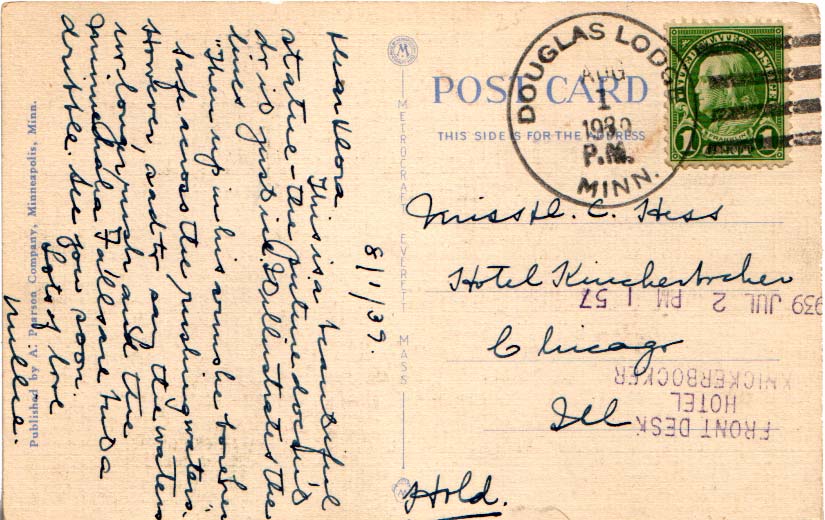 8/1/39.
Dear Flora
This is a beautiful
statue - the picture doesn't
do it justice. It illustrates the
lines
"Then up in his arms he bore her
safe across the rushing waters."
However, sad to say the waters
no longer rush and the
Minnehaha Falls are but a
dribble. See you soon.
Lots of love
Millie.
Published by A. Pearson Company, Minneapolis, Minn.
M
METROCRAFT EVERETT MASS
POST CARD
THIS SIDE IS FOR THE ADDRESS
DOUGLAS LODGE
AUG
1
1939
P.M.
MINN.
UNITED STATES POSTAGE
1 CENT 1
Miss C. Hess
Hotel Knickerbocker
Chicago
Ill
Hold.
FRONT DESK
HOTEL
KNICKERBOCKER
939 JUL 2 PM 1 57